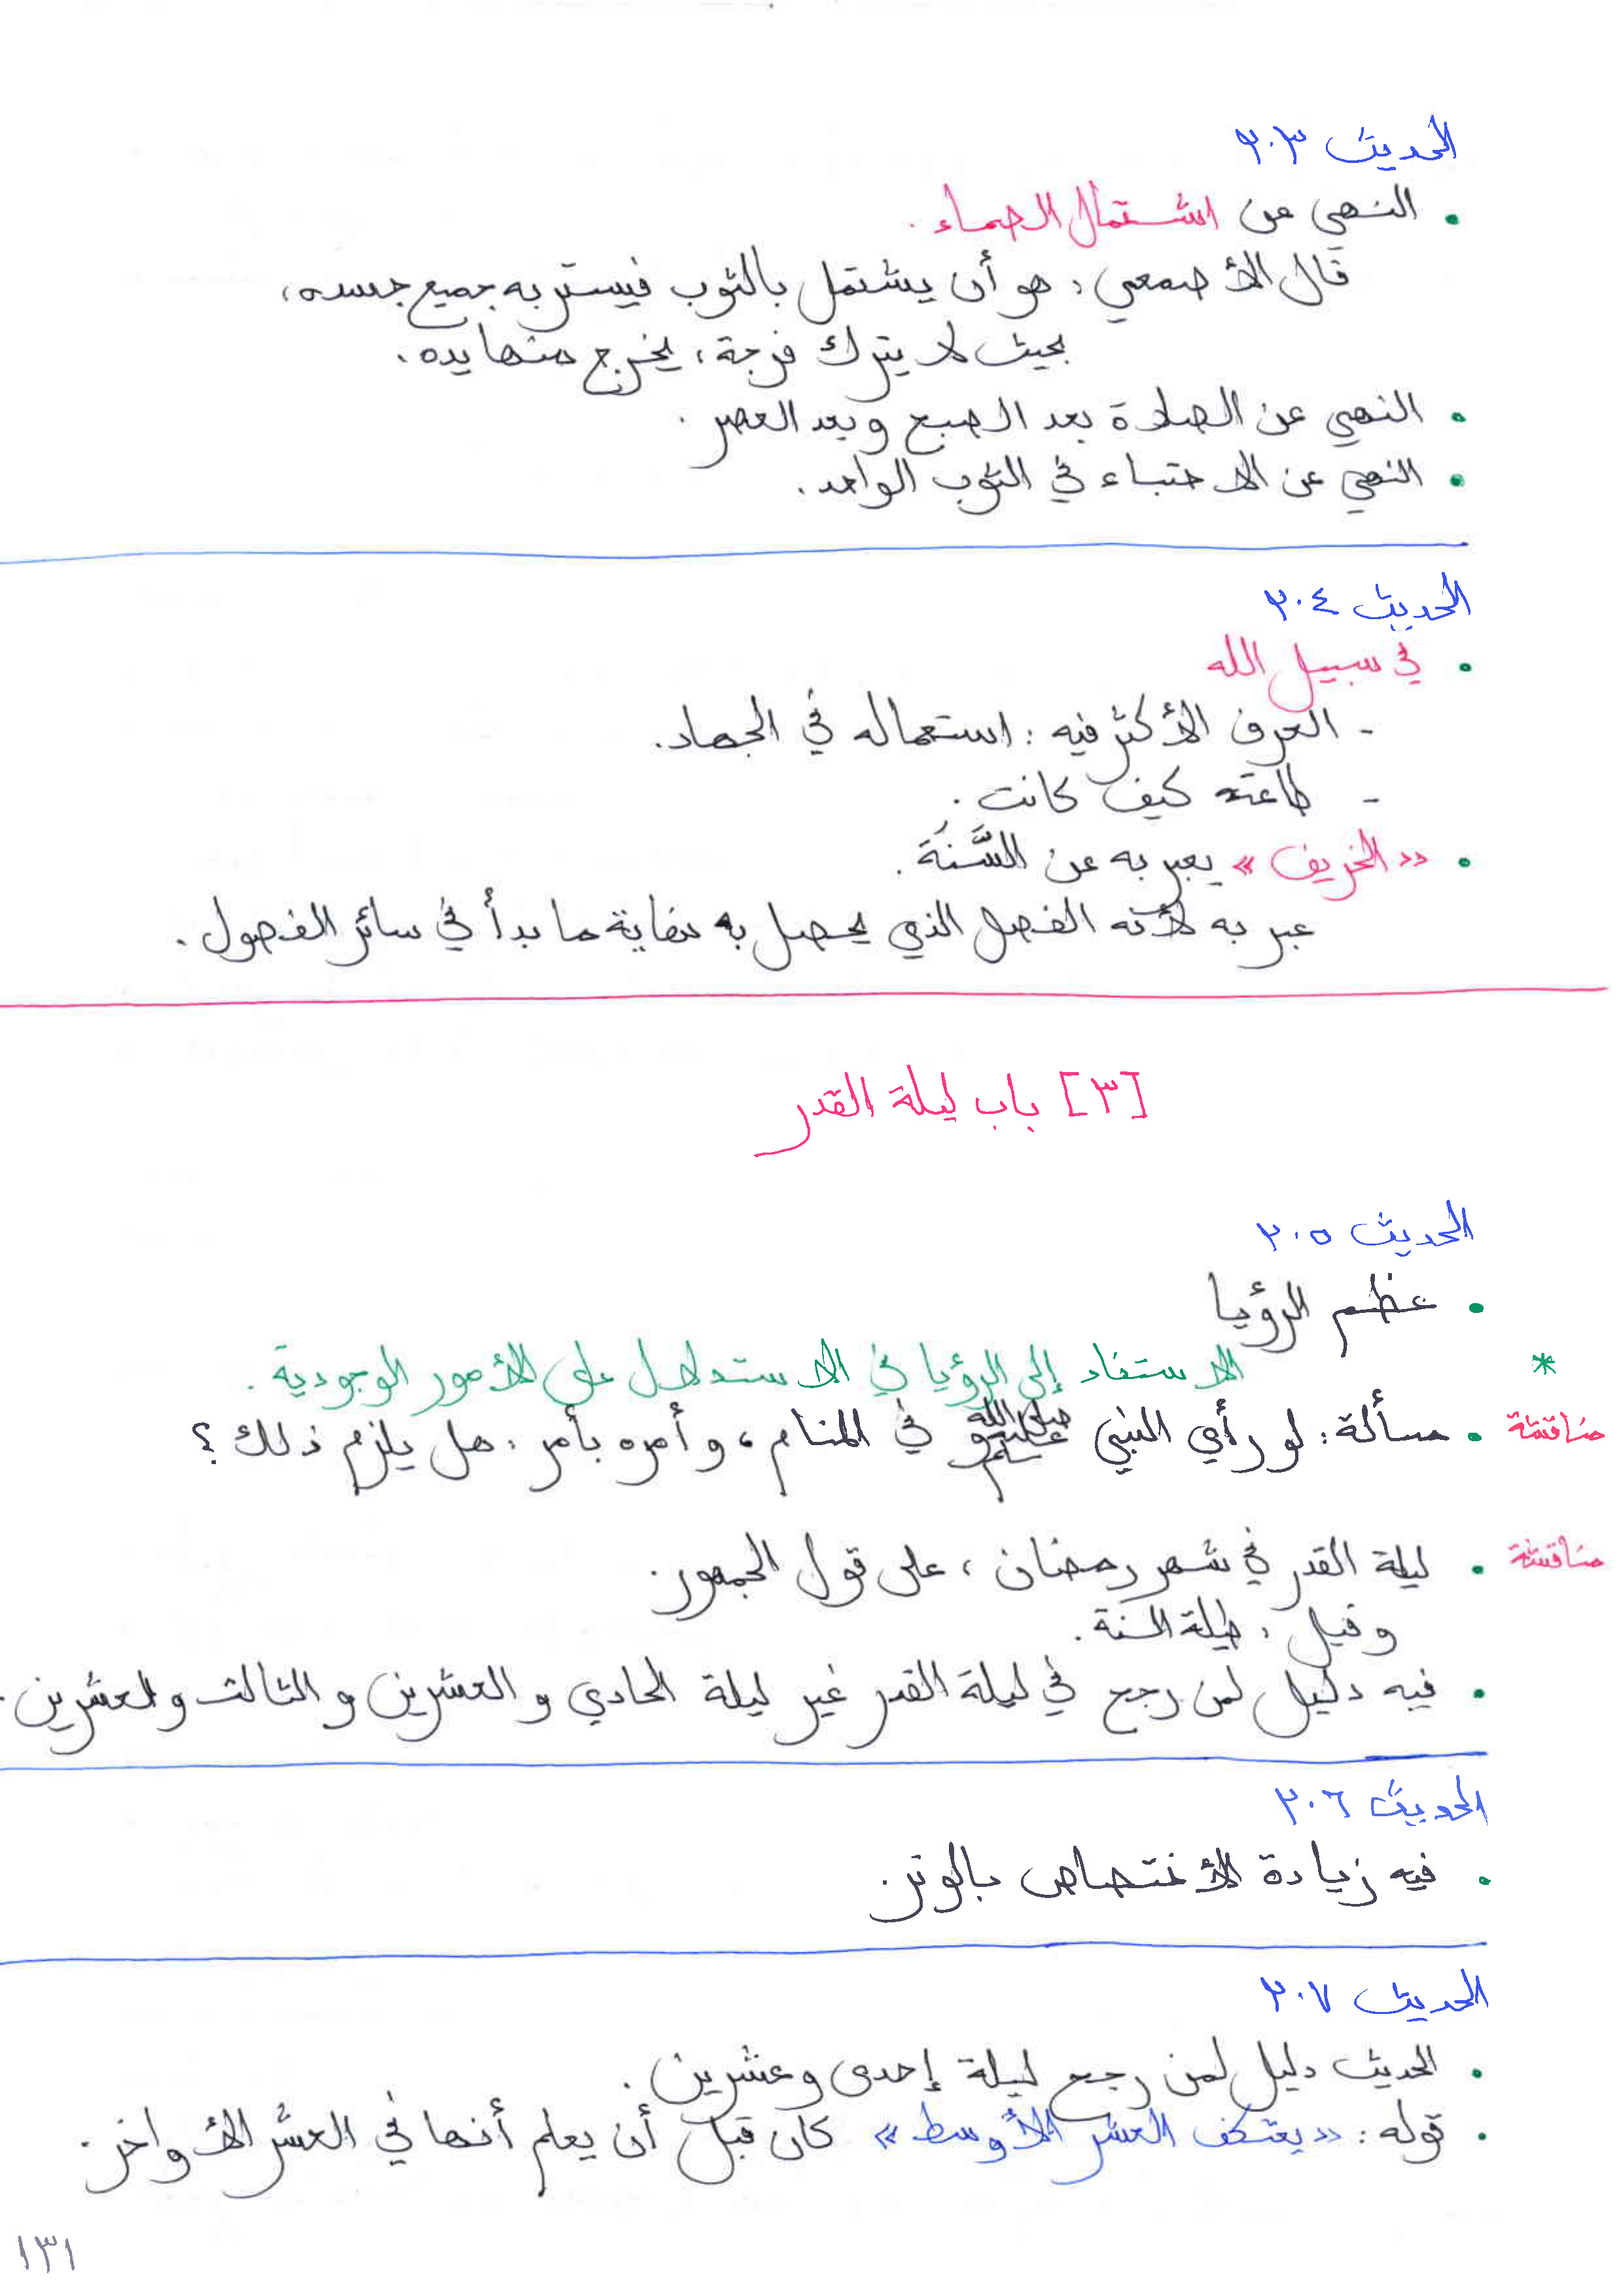 الحديث ٢٠٣
• النهي عن اشتمال الصماء.
قال الأصمعي: هو أن يشتمل بالثوب فيستر به جميع جسده،
بحيث لا يترك فرجة، يخرج منها يده.
• النهي عن الصلاة بعد الصبح وبعد العصر.
• النهي عن الاحتباء في الثوب الواحد.
الحديث ٢٠٤
• في سبيل الله
- العرف الأكثر فيه: استعماله في الجهاد.
- طاعته كيف كانت.
• «الخريف» يعبر به عن السَّنَة.
عبر به لأنه الفصل الذي يحصل به نهاية ما بدأ في سائر الفصول.
[٣] باب ليلة القدر
الحديث ٢٠٥
• عظم الرؤيا
* الاستناد إلى الرؤيا في الاستدلال على الأمور الوجودية.
مناقشة • مسألة: لو رأى النبي صلى الله عليه وسلم في المنام، وأمره بأمر، هل يلزم ذلك؟
مناقشة • ليلة القدر في شهر رمضان، على قول الجمهور.
وقيل: طيلة السنة.
• فيه دليل لمن رجح في ليلة القدر غير ليلة الحادي والعشرين والثالث والعشرين.
الحديث ٢٠٦
• فيه زيادة الأختصاص بالوتر.
الحديث ٢٠٧
• الحديث دليل لمن رجح ليلة إحدى وعشرين.
• قوله: «يعتكف العشر الأوسط» كان قبل أن يعلم أنها في العشر الأواخر.
١٣١